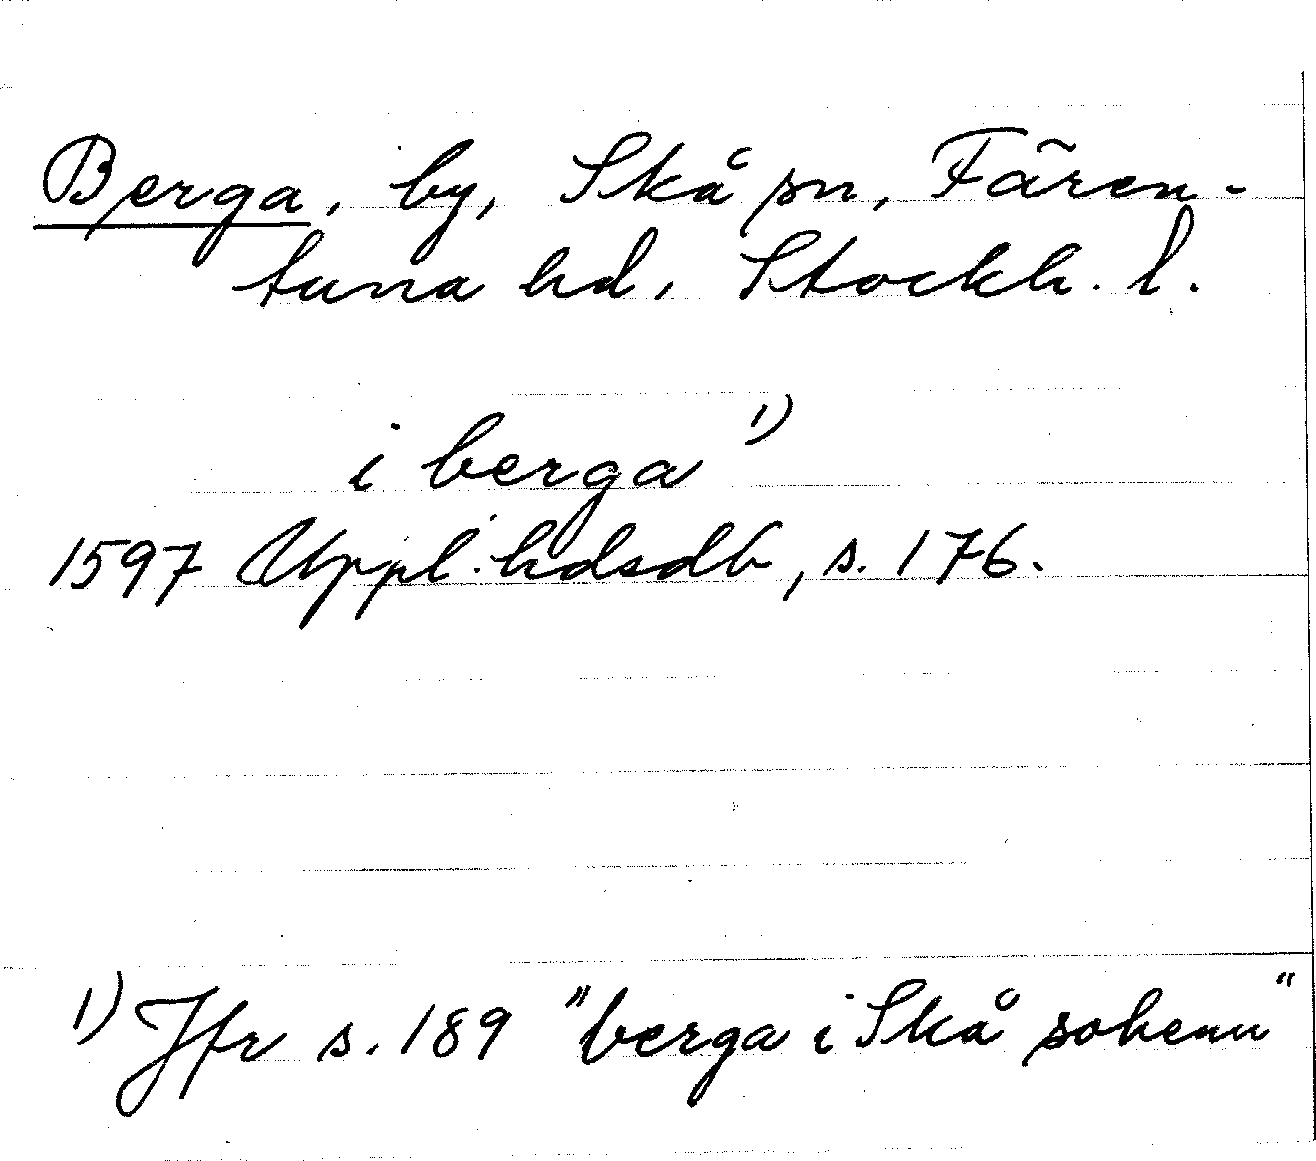 Berga, by, Skå sn, Fären-
tuna hd, Stockh. l.
i berga 1)
1597 Uppl. hdsdb, s. 176.
1) Jfr s. 189 "berga i Skå sokenn"